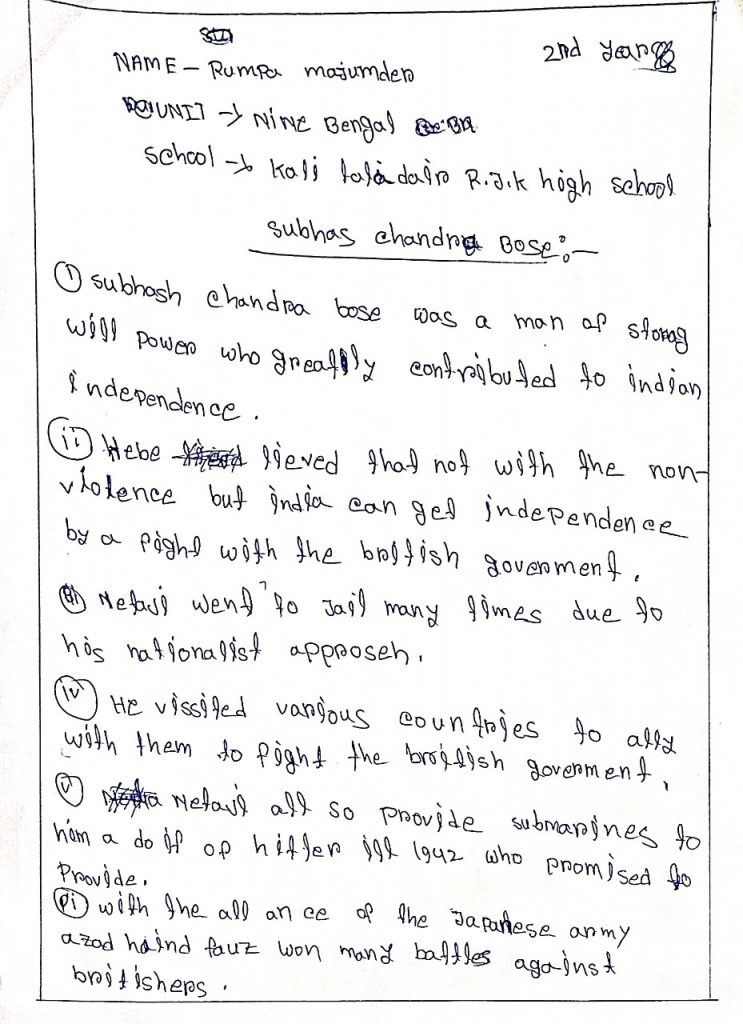 2nd year
NAME - Rumpa majumder
UNIT → NiNe Bengal BN
School → Kali taladair R.J.K high school
subhas chandra Bose:-
i) subhash chandra bose was a man of storag
will power who greatly contributed to indian
independence.
ii) Hebe lieved that not with the non-
violence but india can get independence
by a fight with the british goverment.
iii) Netaji went to Jail many times due to
his nationalist approseh.
iv) He vissited various countries to ally
with them to fight the british goverment.
v) Netaji all so provide submarines to
him a do lf of hitler ill 1942 who promised to
Provide.
vi) with the all an ce of the Japanese army
azad haind fauz won many battles against
britishers.